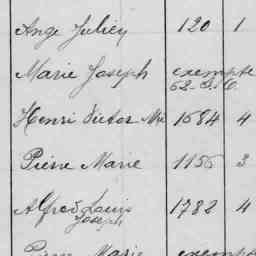 Ange Julien 120 1
Marie Joseph exempte
Henri Victor Me 1684 4
Pierre Marie 1156 3
Alfred Louis 1782 4
Joseph
Marie exempte